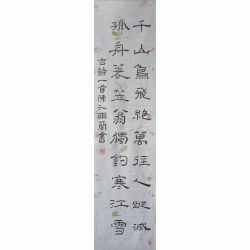 千山鳥飛絕萬徑人踪滅
孤舟蓑笠翁獨釣寒江雪
古詩一首陳書